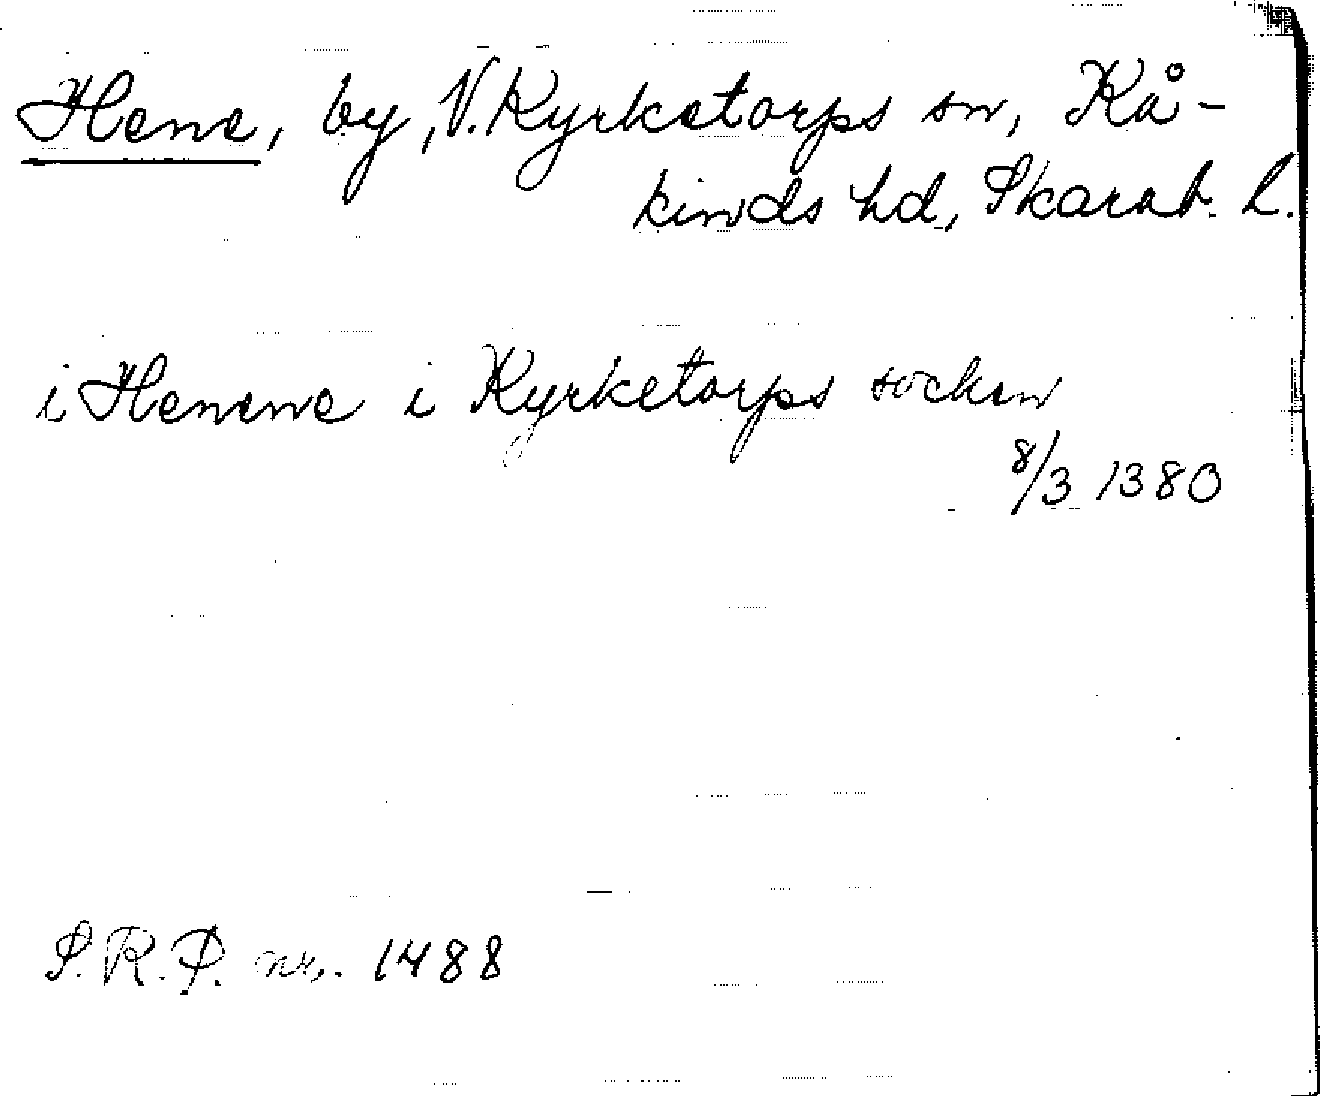 Hene, by, V. Kyrketorps sn, Kå-
kinds hd, Skarab. l.
i Henene i Kyrketorps socken
8/3 1380
S.R.P. nr. 1488